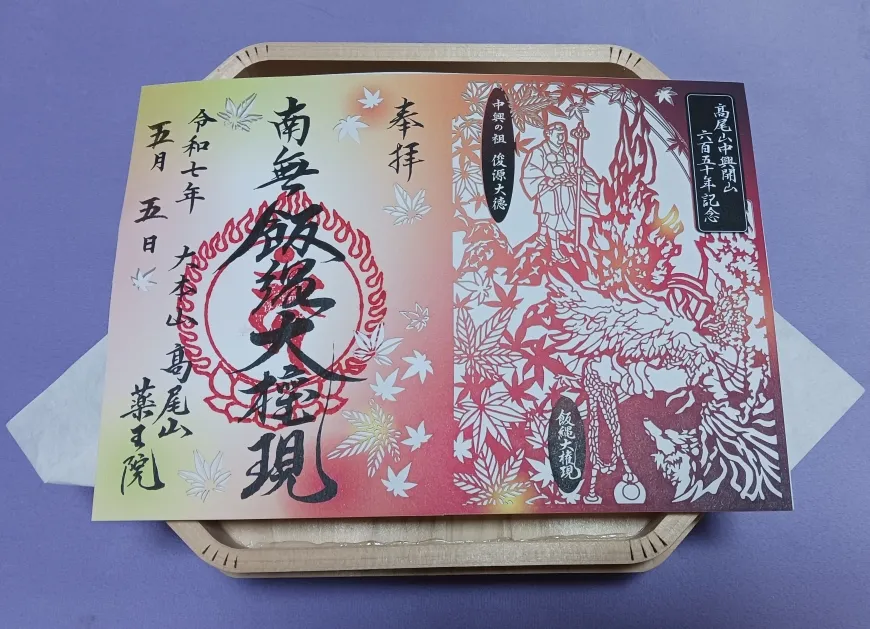 高尾山中興開山
六百五十年記念
中興の祖 俊源大徳
飯縄大権現
奉拝
南無飯縄大権現
令和七年
五月五日
大本山髙尾山
薬王院